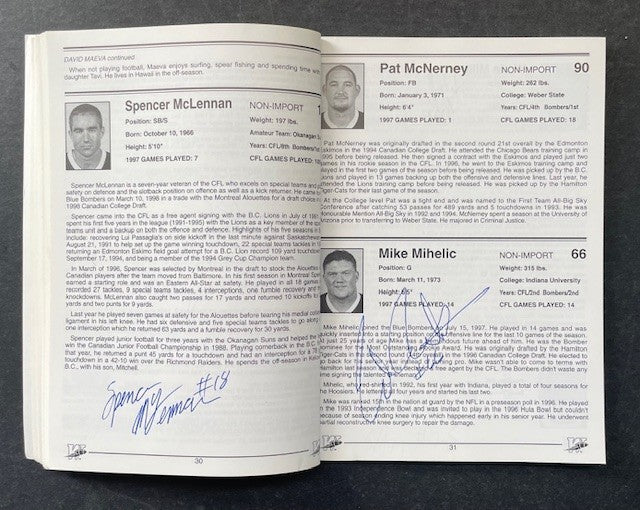 DAVID MAEVA continued
When not playing football, Maeva enjoys surfing, spear fishing and spending time with
daughter Tavi. He lives in Hawaii in the off-season.
Spencer McLennan NON-IMPORT 1
Position: SB/S Weight: 197 lbs.
Born: October 10, 1966 Amateur Team: Okanagan
Height: 5'10" Years: CFL/8th Bombers/1st
1997 GAMES PLAYED: 7 CFL GAMES PLAYED:
Spencer McLennan is a seven-year veteran of the CFL who excels on special teams and
safety on defence and the slotback position on offence as well as a kick returner. He came to
Blue Bombers on March 10, 1998 in a trade with the Montreal Alouettes for a draft choice in
1998 Canadian College Draft.
Spencer came into the CFL as a free agent signing with the B.C. Lions in July of 1991
spent his first five years in the league (1991-1995) with the Lions as a key member of the
teams unit and a backup on both the offence and defence. Highlights of his five seasons in
include: recovering Lui Passaglia's on side kickoff in the last minute against Saskatchewan
August 21, 1991 to help set up the game winning touchdown, 22 special teams tackles in
returning an Edmonton Eskimo field goal attempt for a B.C. Lion record 109 yard touchdown
September 17, 1994, and being a member of the 1994 Grey Cup Champion team.
In March of 1996, Spencer was selected by Montreal in the draft to stock the Alouettes
Canadian players after the team moved from Baltimore. In his first season in Montreal
earned a starting role and was an Eastern All-Star at safety. He played in all 18 games
recorded 27 tackles, 9 special teams tackles, 4 interceptions, one fumble recovery and
knockdowns. McLennan also caught two passes for 17 yards and returned 10 kickoffs for
yards and two punts for 9 yards.
Last year he played seven games at safety for the Alouettes before tearing his medial
ligament in his left knee. He had six defensive and five special teams tackles to go along
one interception which he returned 63 yards and a fumble recovery for 30 yards.
Spencer played junior football for three years with the Okanagan Suns and helped the
win the Canadian Junior Football Championship in 1988. Playing cornerback in the B.C.
that year, he returned a punt 45 yards for a touchdown and had an interception for a 78
touchdown in a 42-10 win over the Richmond Raiders. He spends the off-season in
B.C., with his son, Mitchell.
Spencer
McLennan #18
30
Pat McNerney NON-IMPORT 90
Position: FB Weight: 262 lbs.
Born: January 3, 1971 College: Weber State
Height: 6'4" Years: CFL/4th Bombers/1st
1997 GAMES PLAYED: 1 CFL GAMES PLAYED: 18
Pat McNerney was originally drafted in the second round 21st overall by the Edmonton
Eskimos in the 1994 Canadian College Draft. He attended the Chicago Bears training camp in
1995 before being released. He then signed a contract with the Eskimos and played just two
games in his rookie season in the CFL. In 1996, he went to the Eskimo training camp and
played in the first two games of the season before being released. He was picked up by the B.C.
Lions and played in 13 games backing up both the offensive and defensive lines. Last year, he
attended the Lions training camp before being released. He was picked up by the Hamilton
Tiger-Cats for their last game of the season.
At the College level Pat was a tight end and was named to the First Team All-Big Sky
Conference after catching 53 passes for 489 yards and 5 touchdowns in 1993. He was
Honourable Mention All-Big Sky in 1992 and 1994. McNerney spent a season at the University of
Arizona prior to transferring to Weber State. He majored in Criminal Justice.
Mike Mihelic NON-IMPORT 66
Position: G Weight: 315 lbs.
Born: March 11, 1973 College: Indiana University
Height: 6'5" Years: CFL/2nd Bombers/2nd
1997 GAMES PLAYED: 14 CFL GAMES PLAYED: 14
Mike Mihelic joined the Blue Bombers July 15, 1997. He played in 14 games and was
quickly inserted into a starting position on the offensive line for the last 10 games of the season.
At just 25 years of age Mike has a tremendous future ahead of him. He was the Bomber
nominee for the Most Outstanding Rookie Award. He was originally drafted by the Hamilton
Tiger-Cats in the 1996 Canadian College Draft. He elected to
go back for his senior year instead of turning pro. Mike wasn't able to come to terms with
Hamilton last season free agent by the CFL. The Bombers didn't waste any
time signing the talented
Mihelic, who red-shirted in 1992, his first year with Indiana, played a total of four seasons for
the Hoosiers. He lettered all four years and started his last two.
Mike was ranked 15th in the nation at guard by the NFL in a preseason poll in 1996. He played
in the 1993 Independence Bowl and was invited to play in the 1996 Hula Bowl but couldn't
because of season ending knee injury which happened early in his senior year. He underwent
partial reconstructive knee surgery to repair the damage.
31